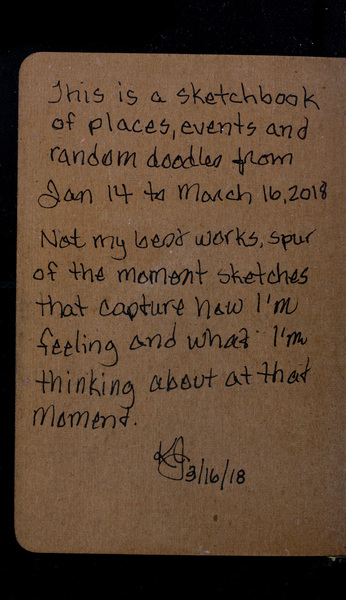 This is a sketchbook
of places, events and
random doodles from
Jan 14 to March 16, 2018
Not my best works, spur
of the moment sketches
that capture how I'm
feeling and what I'm
thinking about at that
moment.
KJ 3/16/18